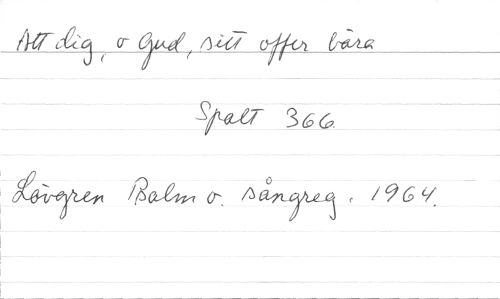 Att dig, o Gud, sitt offer bära
Spalt 366.
Lövgren Psalm o. sångreg. 1964.